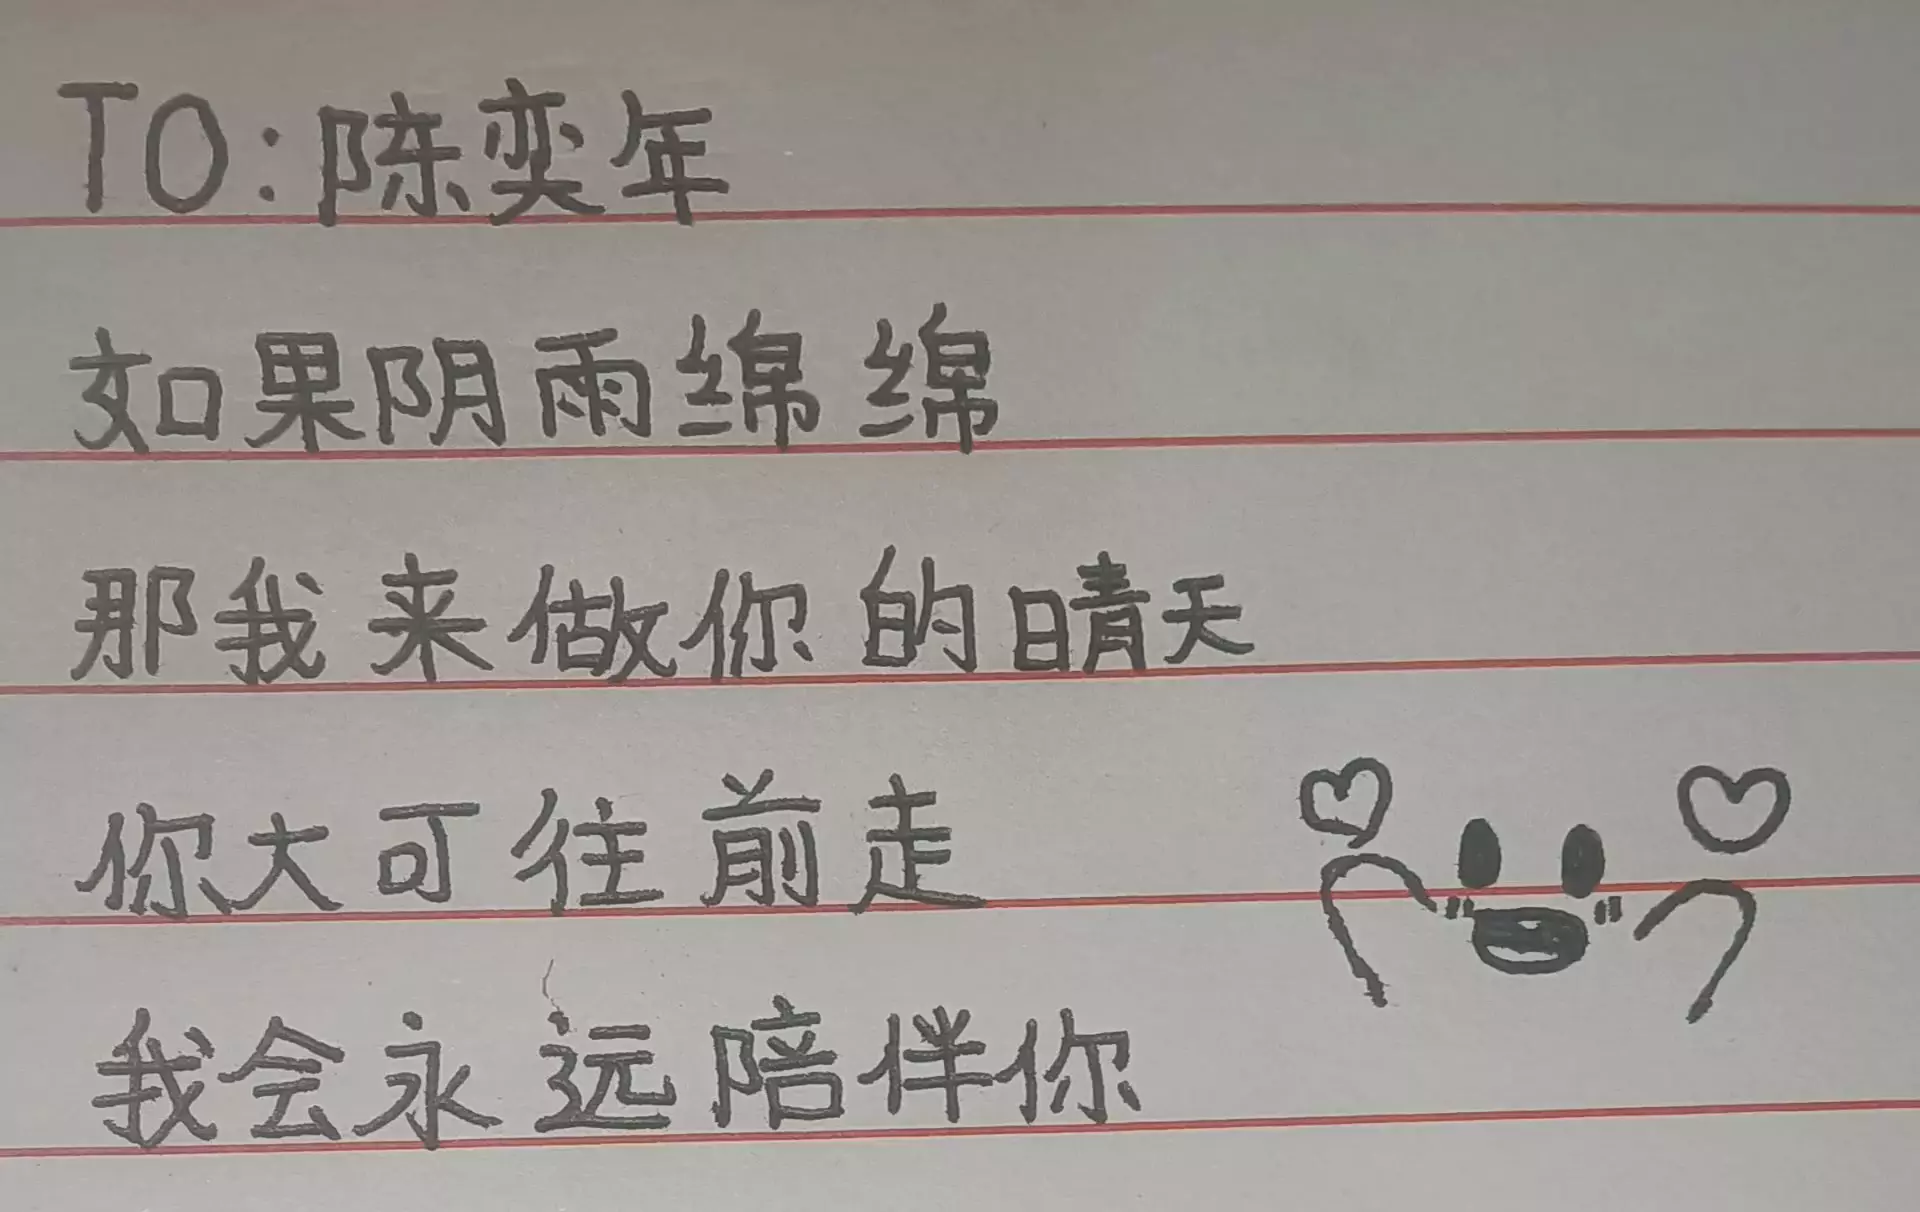 TO:陈奕年
如果阴雨绵绵
那我来做你的晴天
你大可往前走
我会永远陪伴你